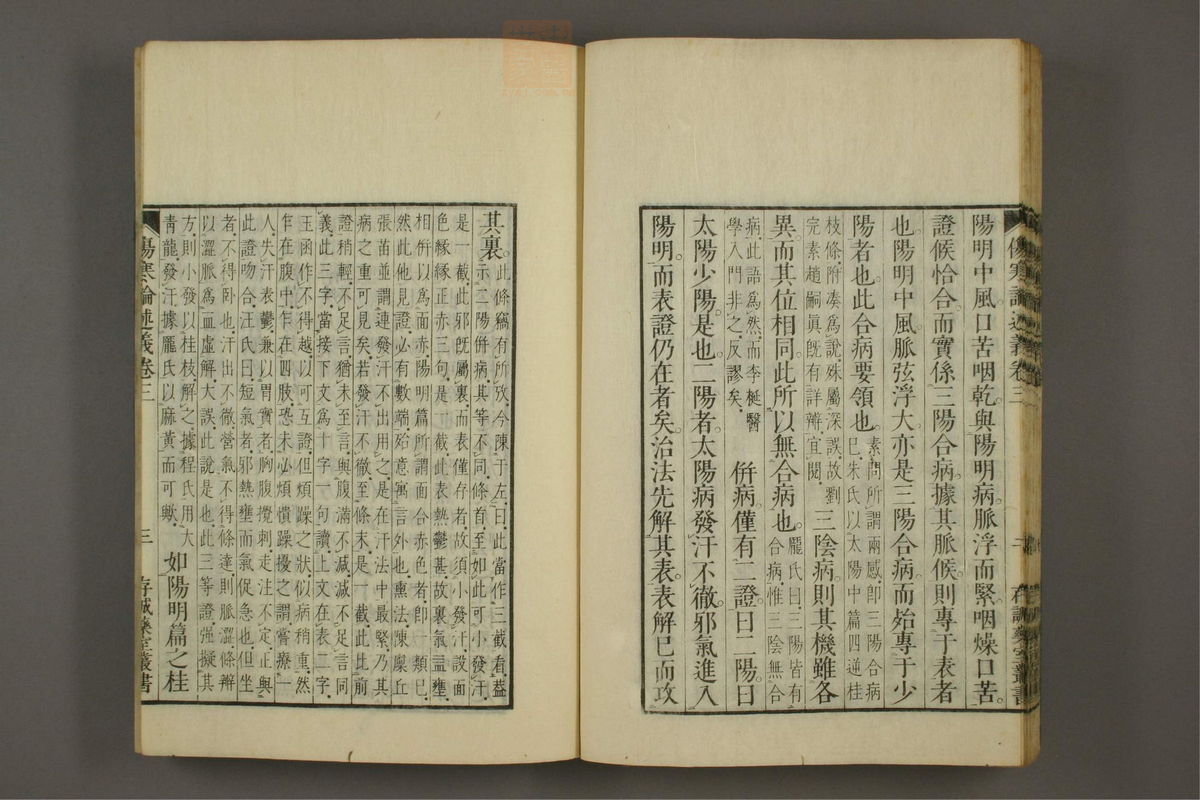 陽明中風。口苦咽乾。與陽明病脈浮而緊咽燥口苦。
證候恰合。而實係三陽合病。據其脈候。則專于表者
也。陽明中風。脈弦浮大。亦是三陽合病。而始專于少
陽者也。此合病要領也。素問所謂兩感。卽三陽合病
巳。朱氏以太陽中篇四逆桂
枝條附湊爲說。殊屬深誤。故劉
完素趙嗣眞既有詳辨。宜閱。三陰病。則其機雖各
異。而其位相同。此所以無合病也。龐氏曰。三陽皆有
合病。惟三陰無合
病。此語爲然。而李梴醫
學入門非之。反謬矣。併病僅有二證。曰二陽。曰
太陽少陽。是也。二陽者。太陽病發汗不徹。邪氣進入
陽明。而表證仍在者矣。治法先解其表。表解巳而攻
傷寒論述義卷三
其裏。此條竊有所攷。今陳于左。曰此當作三截看。葢
示二陽併病其等不同。條首至如此可小發汗。
是一截。此邪既屬裏。而表僅存者。故須小發汗。設面
色緣緣正赤三句。是一截。此表熱鬱甚。故裏氣盂壅
相併以爲面赤。陽明篇所謂面合赤色者。卽一類巳。
然此他見證。必有數端。殆意寓言外也。熏法陳廩丘
張苗並謂連發汗不出用之。是在汗法中最緊。乃其
病之重可見矣。若發汗不徹。至條末。是一截。此比前
證稍輕。不足言。猶未至言。與腹滿不減。減不足言同
義。此三字。當接下文爲十字一句讀。上文在表二字。
玉函作不得越。以可互證。但煩躁之狀。似病稍重。然
乍在腹中。乍在四肢。恐未必煩憒躁擾之謂。嘗療一
人。失汗表鬱。兼以胃實者。胸腹攪刺。走注不定。正與
此證吻合。汪氏曰。短氣者。邪熱壅而氣促急也。但坐
者。不得臥也。汗出不徹。營氣不得條達。則脈澀。條辨
以澀脈爲血虛。解大誤。此說是也。此三等證。强擬其
方。則小發以桂枝。解之據程氏用大
靑龍。發汗據龐氏以麻黃而可歟。如陽明篇之桂
傷寒論述義卷三
三
存誠藥室叢書